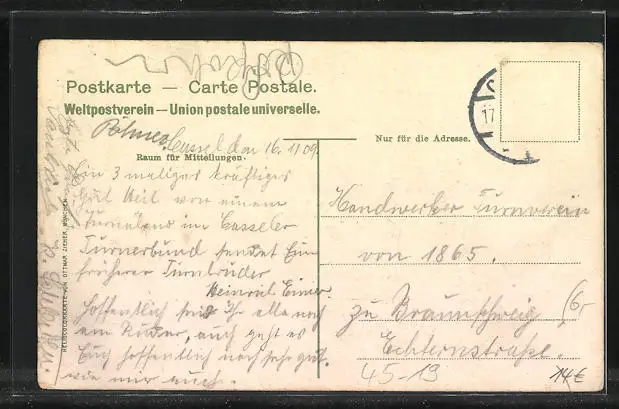 Postkarte — Carte Postale.
Weltpostverein — Union postale universelle.
Nur für die Adresse.
Cassel den 16. 11 09.
Raum für Mitteilungen.
Ein 3 maliges kräftiges
Gut Heil von einem
im Casseler
Turnerbund sendet Euer
früherer Turnbruder
Heinrich
Hoffentlich seid Ihr alle noch
auch geht es
Euch hoffentlich noch sehr gut.
wie mir auch.
Handwerker Turnverein
von 1865.
zu Braunschweig
Echternstraße.
45-19
6,-
14€
17
HELIOCOLORKARTE VON OTTMAR ZIEHER, MÜNCHEN